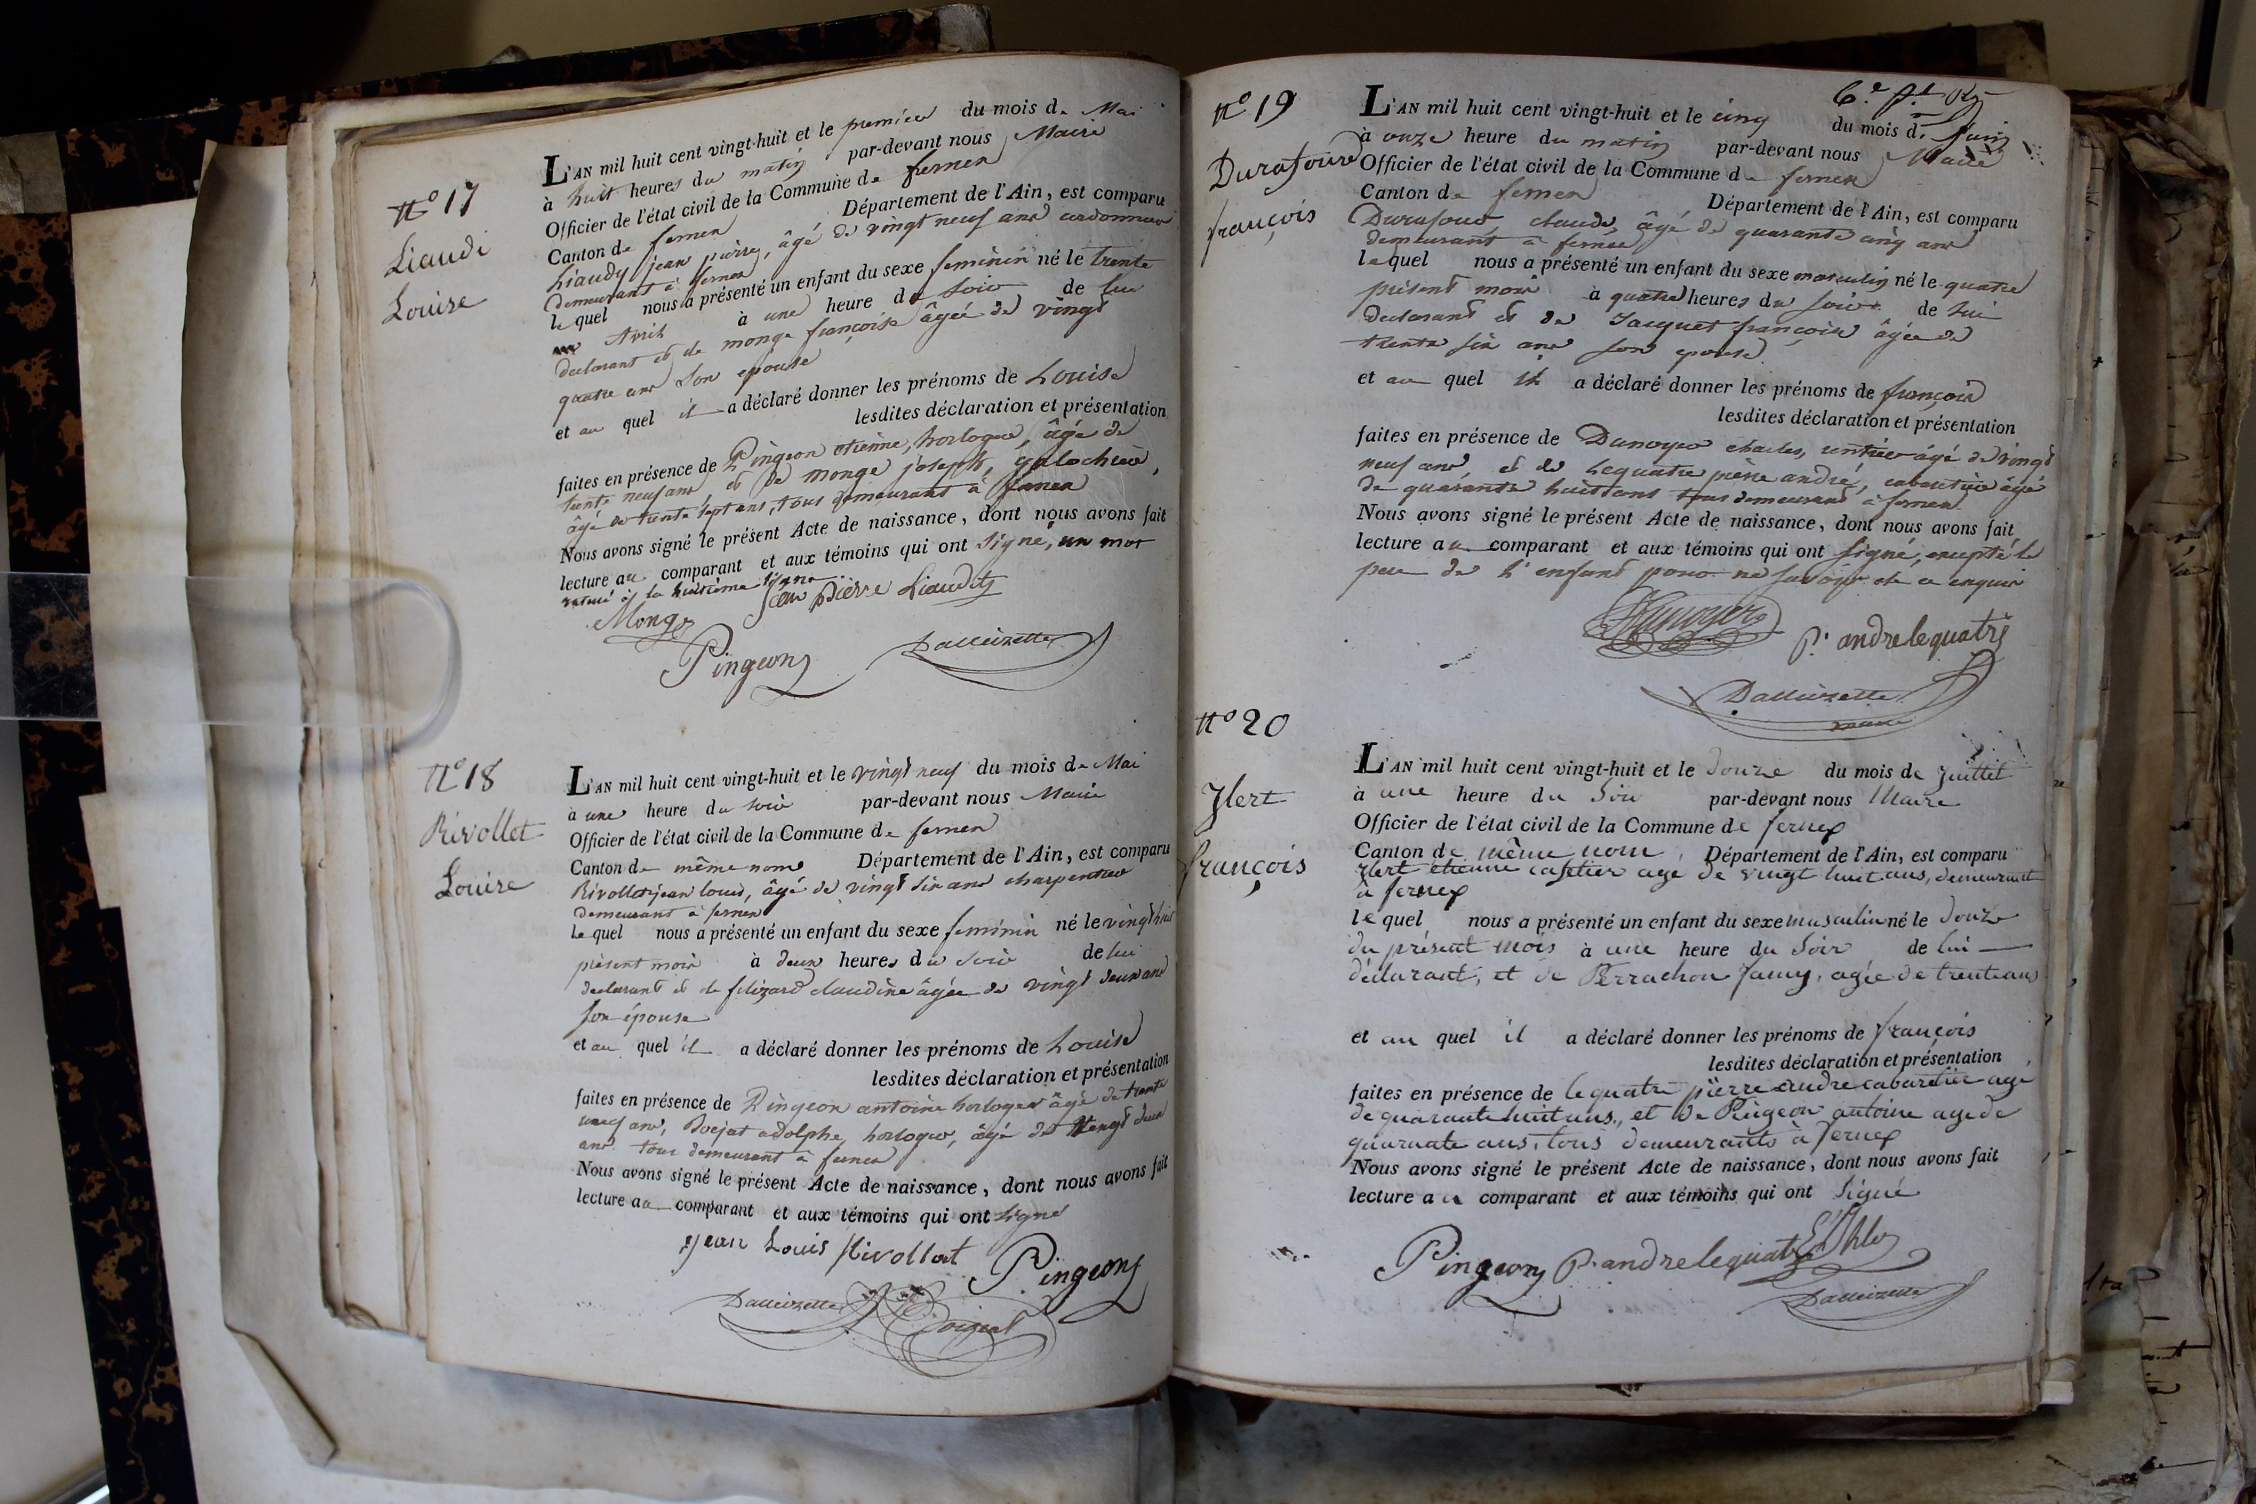 N° 17
Liaudi
Louise
L'AN mil huit cent vingt-huit et le premier du mois de Mai
à huit heures du matin par-devant nous Maire
Officier de l'état civil de la Commune de fernex
Canton de fernex Département de l'Ain, est comparu
Liaudy jean pierre, âgé de vingt neuf ans cordonnier
demeurant à fernex
lequel nous a présenté un enfant du sexe feminin né le trente
Avril à une heure du soir de lui
declarant et de monge françoise âgée de vingt
quatre ans son epouse
et au quel il a déclaré donner les prénoms de Louise
lesdites déclaration et présentation
faites en présence de Pingeon etienne, horloger, âgé de
trente neuf ans et De monge joseph, galochier,
âgé de trente sept ans, tous demeurant à fernex
Nous avons signé le présent Acte de naissance, dont nous avons fait
lecture au comparant et aux témoins qui ont signé, un mot
raturé à la huitième ligne
jean pierre Liaudy
Monge
Pingeon Dalloizette
N° 18
Rivollet
Louise
L'AN mil huit cent vingt-huit et le vingt neuf du mois de Mai
à une heure du soir par-devant nous Maire
Officier de l'état civil de la Commune de fernex
Canton de même nom Département de l'Ain, est comparu
Rivollet jean louis, âgé de vingt six ans charpentier
demeurant à fernex
lequel nous a présenté un enfant du sexe feminin né le vingt huit
présent mois à deux heures du soir de lui
declarant et de claudine âgée de vingt deux ans
son épouse
et au quel il a déclaré donner les prénoms de Louise
lesdites déclaration et présentation
faites en présence de Pingeon antoine horloger âgé de trente
neuf ans, adolphe, horloger, âgé de vingt deux
ans tous demeurant à fernex
Nous avons signé le présent Acte de naissance, dont nous avons fait
lecture au comparant et aux témoins qui ont signé
jean Louis Rivollat
Pingeon
Dalloizette
N° 19
Durafour
françois
L'AN mil huit cent vingt-huit et le cinq du mois de juin
à onze heure du matin par-devant nous Maire
Officier de l'état civil de la Commune de fernex
Canton de fernex Département de l'Ain, est comparu
Durafour claude, âgé de quarante cinq ans
demeurant à fernex
lequel nous a présenté un enfant du sexe masculin né le quatre
présent mois à quatre heures du soir de lui
declarant et de Jacquet françoise âgée de
trente six ans son epouse
et au quel il a déclaré donner les prénoms de françois
lesdites déclaration et présentation
faites en présence de Dunoyer charles, rentier âgé de vingt
neuf ans, et de Lequatre pierre andré, cabaretier âgé
de quarante huit ans tous demeurant à fernex
Nous avons signé le présent Acte de naissance, dont nous avons fait
lecture au comparant et aux témoins qui ont signé, excepté le
pere de l'enfant pour ne savoir de ce enquis
Dunoyer
P. andre lequatre
Dalloizette
maire
N° 20
françois
L'AN mil huit cent vingt-huit et le douze du mois de juillet
à une heure du soir par-devant nous Maire
Officier de l'état civil de la Commune de fernex
Canton de même nom, Département de l'Ain, est comparu
etienne cafetier agé de vingt huit ans, demeurant
à fernex
lequel nous a présenté un enfant du sexe masculin né le douze
du présent mois à une heure du soir de lui
déclarant, et de Perrachon fanny, agée de trente ans
et au quel il a déclaré donner les prénoms de françois
lesdites déclaration et présentation
faites en présence de lequatre pierre andre cabaretier agé
de quarante huit ans, et de Pingeon antoine agé de
quarante ans, tous demeurants à fernex
Nous avons signé le présent Acte de naissance, dont nous avons fait
lecture au comparant et aux témoins qui ont signé
Pingeon P. andre lequatre
Dalloizette